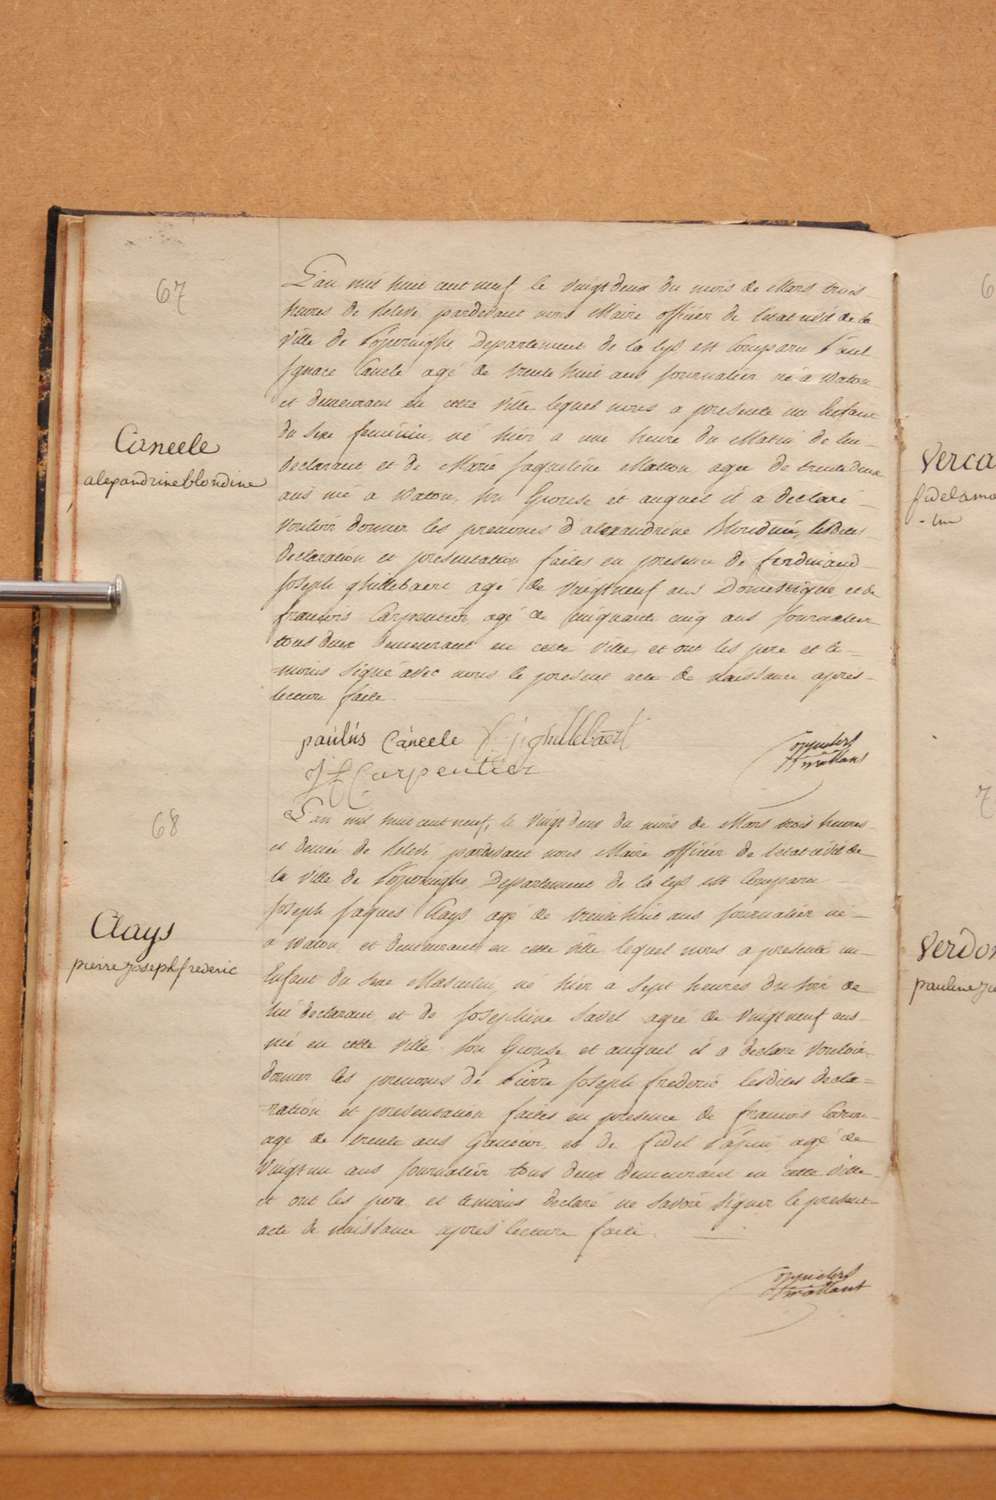 67
Caneele
alexandrine blondine
L'an mil huit cent neuf le vingt deux du mois de Mars trois
heures de relevée pardevant nous Maire officier de l'etat civil de la
Ville de Poperinghe Departement de la Lys est Comparu Paul
Ignace Canele agé de trente huit ans Journalier né a Watou
et demeurant en cette Ville lequel nous a presenté un Enfant
du sexe feminin, né hier a une heure du Matin de lui
declarant et de Marie Jaqueline Matton agee de trente deux
ans né a Watou, son Epouse et auquel il a declaré
vouloir donner les prenoms d'alexandrine Blondine, lesdites
declaration et presentation faites en presence de ferdinand
Joseph ghillebaert agé de vingt neuf ans Domestique et de
françois Carpentier, agé de cinquante cinq ans Journalier
tous deux demeurant en cette Ville, et ont les pere et te-
moins signé avec nous le present acte de naissance apres
lecture faite
paulus Caneele F: j: ghillebaert
JF Carpentier
68
Clays
pierre joseph frederic
L'an mil huit cent neuf, le vingt deux du mois de Mars trois heures
et demie de relevé pardevant nous Maire officier de l'etat civil de
la Ville de Poperinghe, Departement de la Lys est Comparu
Joseph Jaques Clays agé de trente huit ans Journalier né
a Watou, et demeurant en cette Ville lequel nous a presenté un
Enfant du sexe Masculin, né hier a sept heures du soir de
lui declarant et de Josephine agée de vingt neuf ans
né en cette Ville son Epouse et auquel il a declaré vouloir
donner les prenoms de Pierre Joseph frederic lesdites decla-
ration et presentation faites en presence de francois
agé de trente ans et de fidel agé de
vingt un ans Journalier tous deux demeurant en cette Ville
et ont les pere et temoins declaré ne savoir signer le present
acte de naissance apres lecture faite.
6
Verca
fidel ama
7
Verdon
pauline